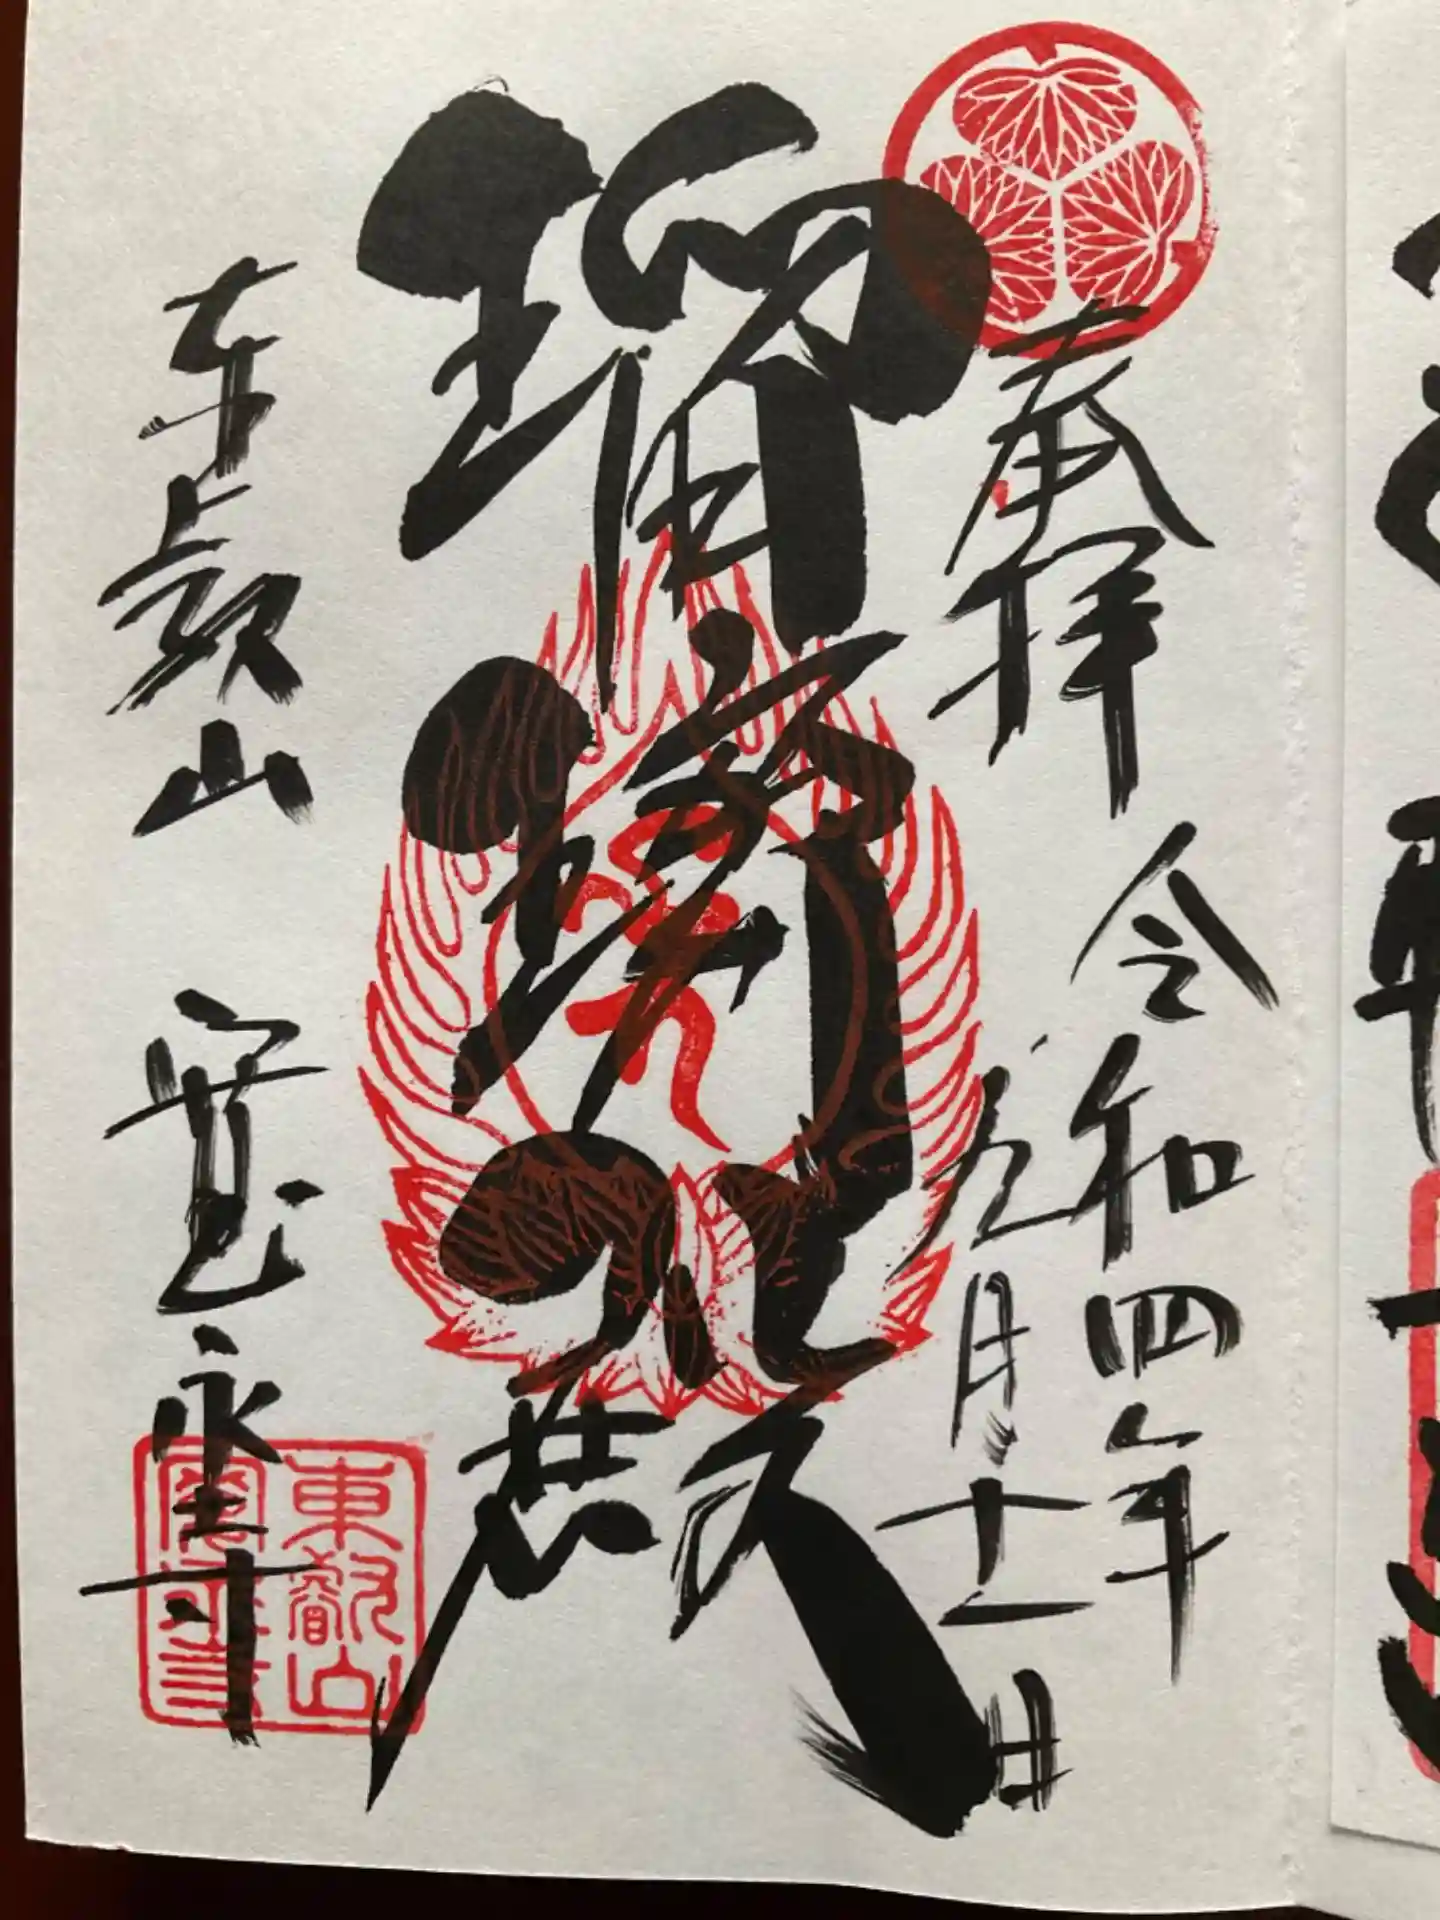 奉拝
令和四年
九月十一日
瑠璃殿
東叡山 寛永寺
東叡山
寛永寺